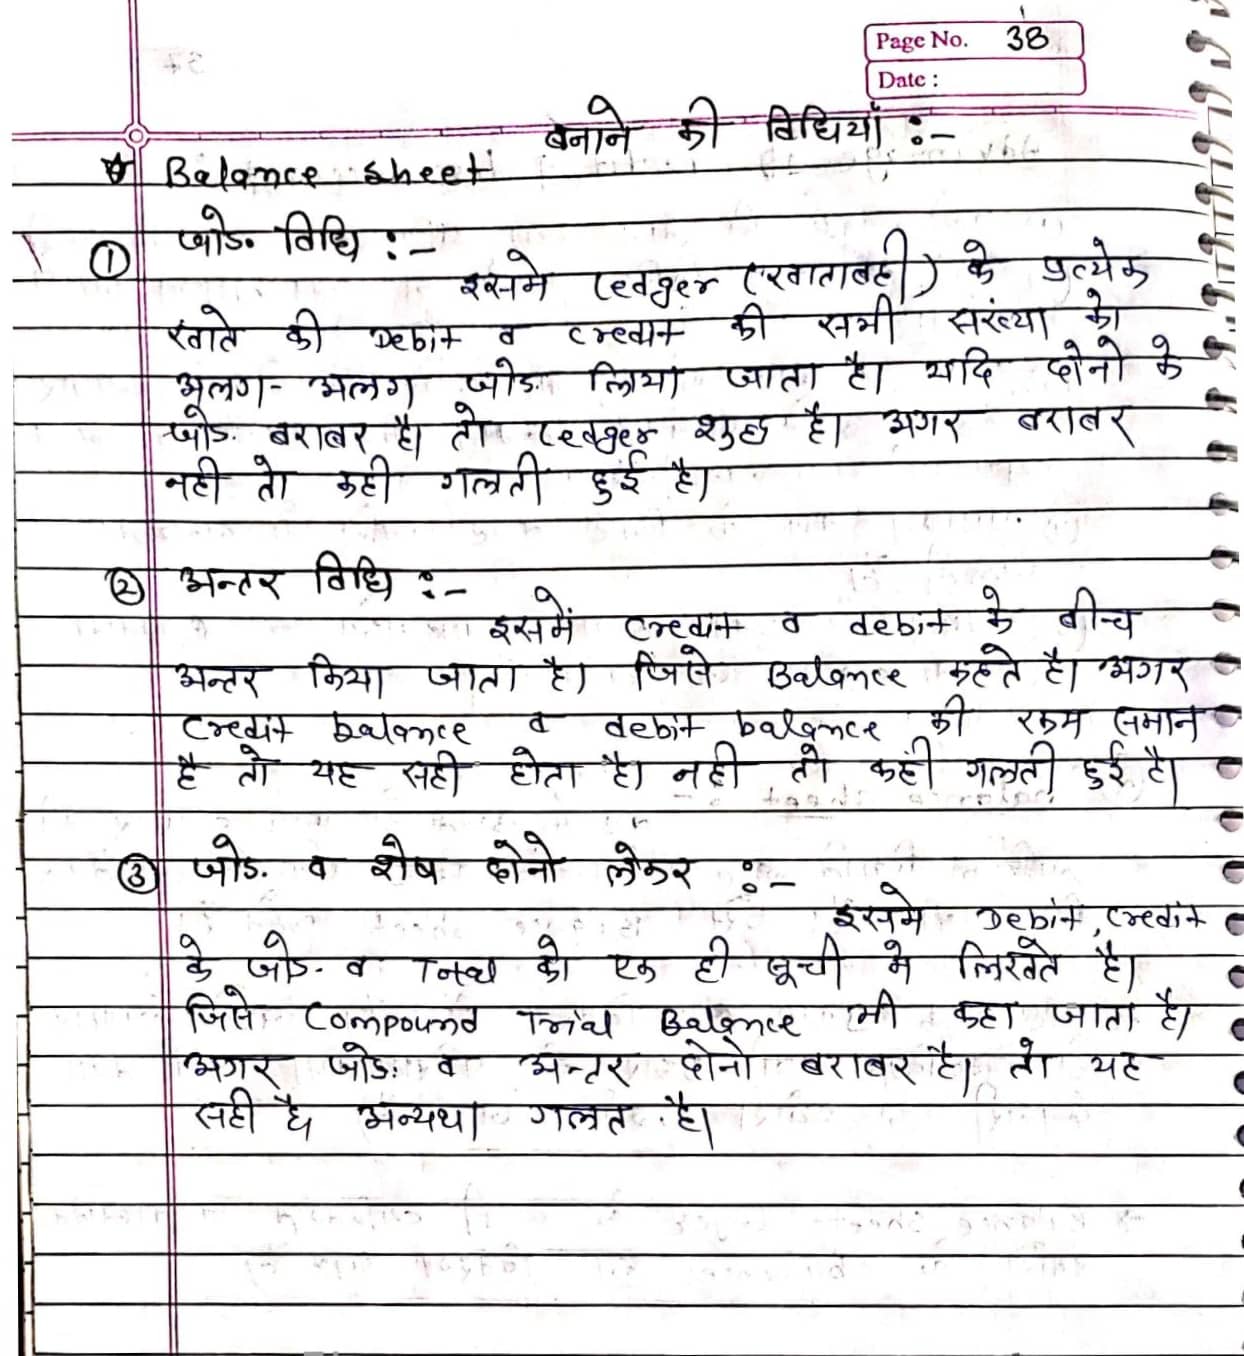 Page No. 38
Date :
बनाने की विधियाँ :-
Balance sheet
① जोड. विधि :-
इसमे Ledger (खाताबही) के प्रत्येक
खाते की Debit व credit की सभी संख्या को
अलग- अलग जोड. लिया जाता है। यदि दोनो के
जोड. बराबर है। तो Ledger शुद्ध है। अगर बराबर
नही तो कही गलती हुई है।
② अन्तर विधि :-
इसमें credit व debit के बीच
अन्तर किया जाता है। जिसे Balance कहते है। अगर
credit balance व debit balance की रकम समान
है तो यह सही होता है। नही तो कहीं गलती हुई है।
③ जोड. व शेष दोनो लेकर :-
इसमे Debit, credit
के जोड. व Total को एक ही सूची मे लिखते है।
जिसे Compound Trial Balance भी कहा जाता है।
अगर जोड. व अन्तर दोनो बराबर है। तो यह
सही है अन्यथा गलत है।